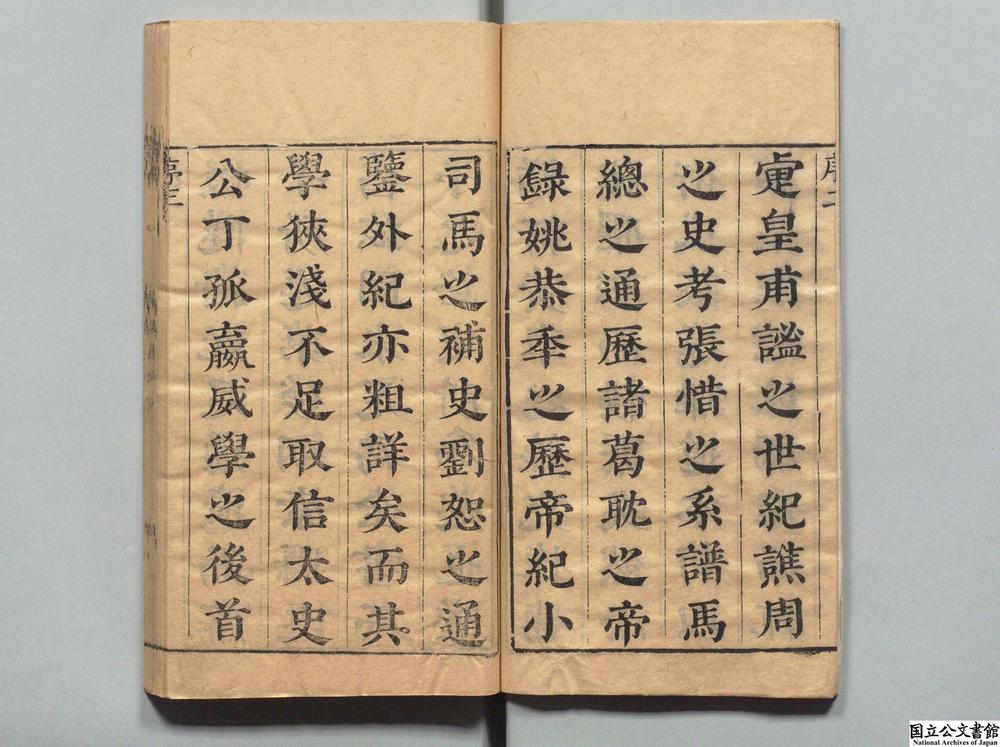 序二
皇甫謐之世紀譙周
之史考張惜之系譜馬
總之通歷諸葛耽之帝
錄姚恭秊之歷帝紀小
司馬之補史劉恕之通
鑒外紀亦粗詳矣而其
學狹淺不足取信太史
公丁孤嬴威學之後首
序三
国立公文書館
National Archives of Japan